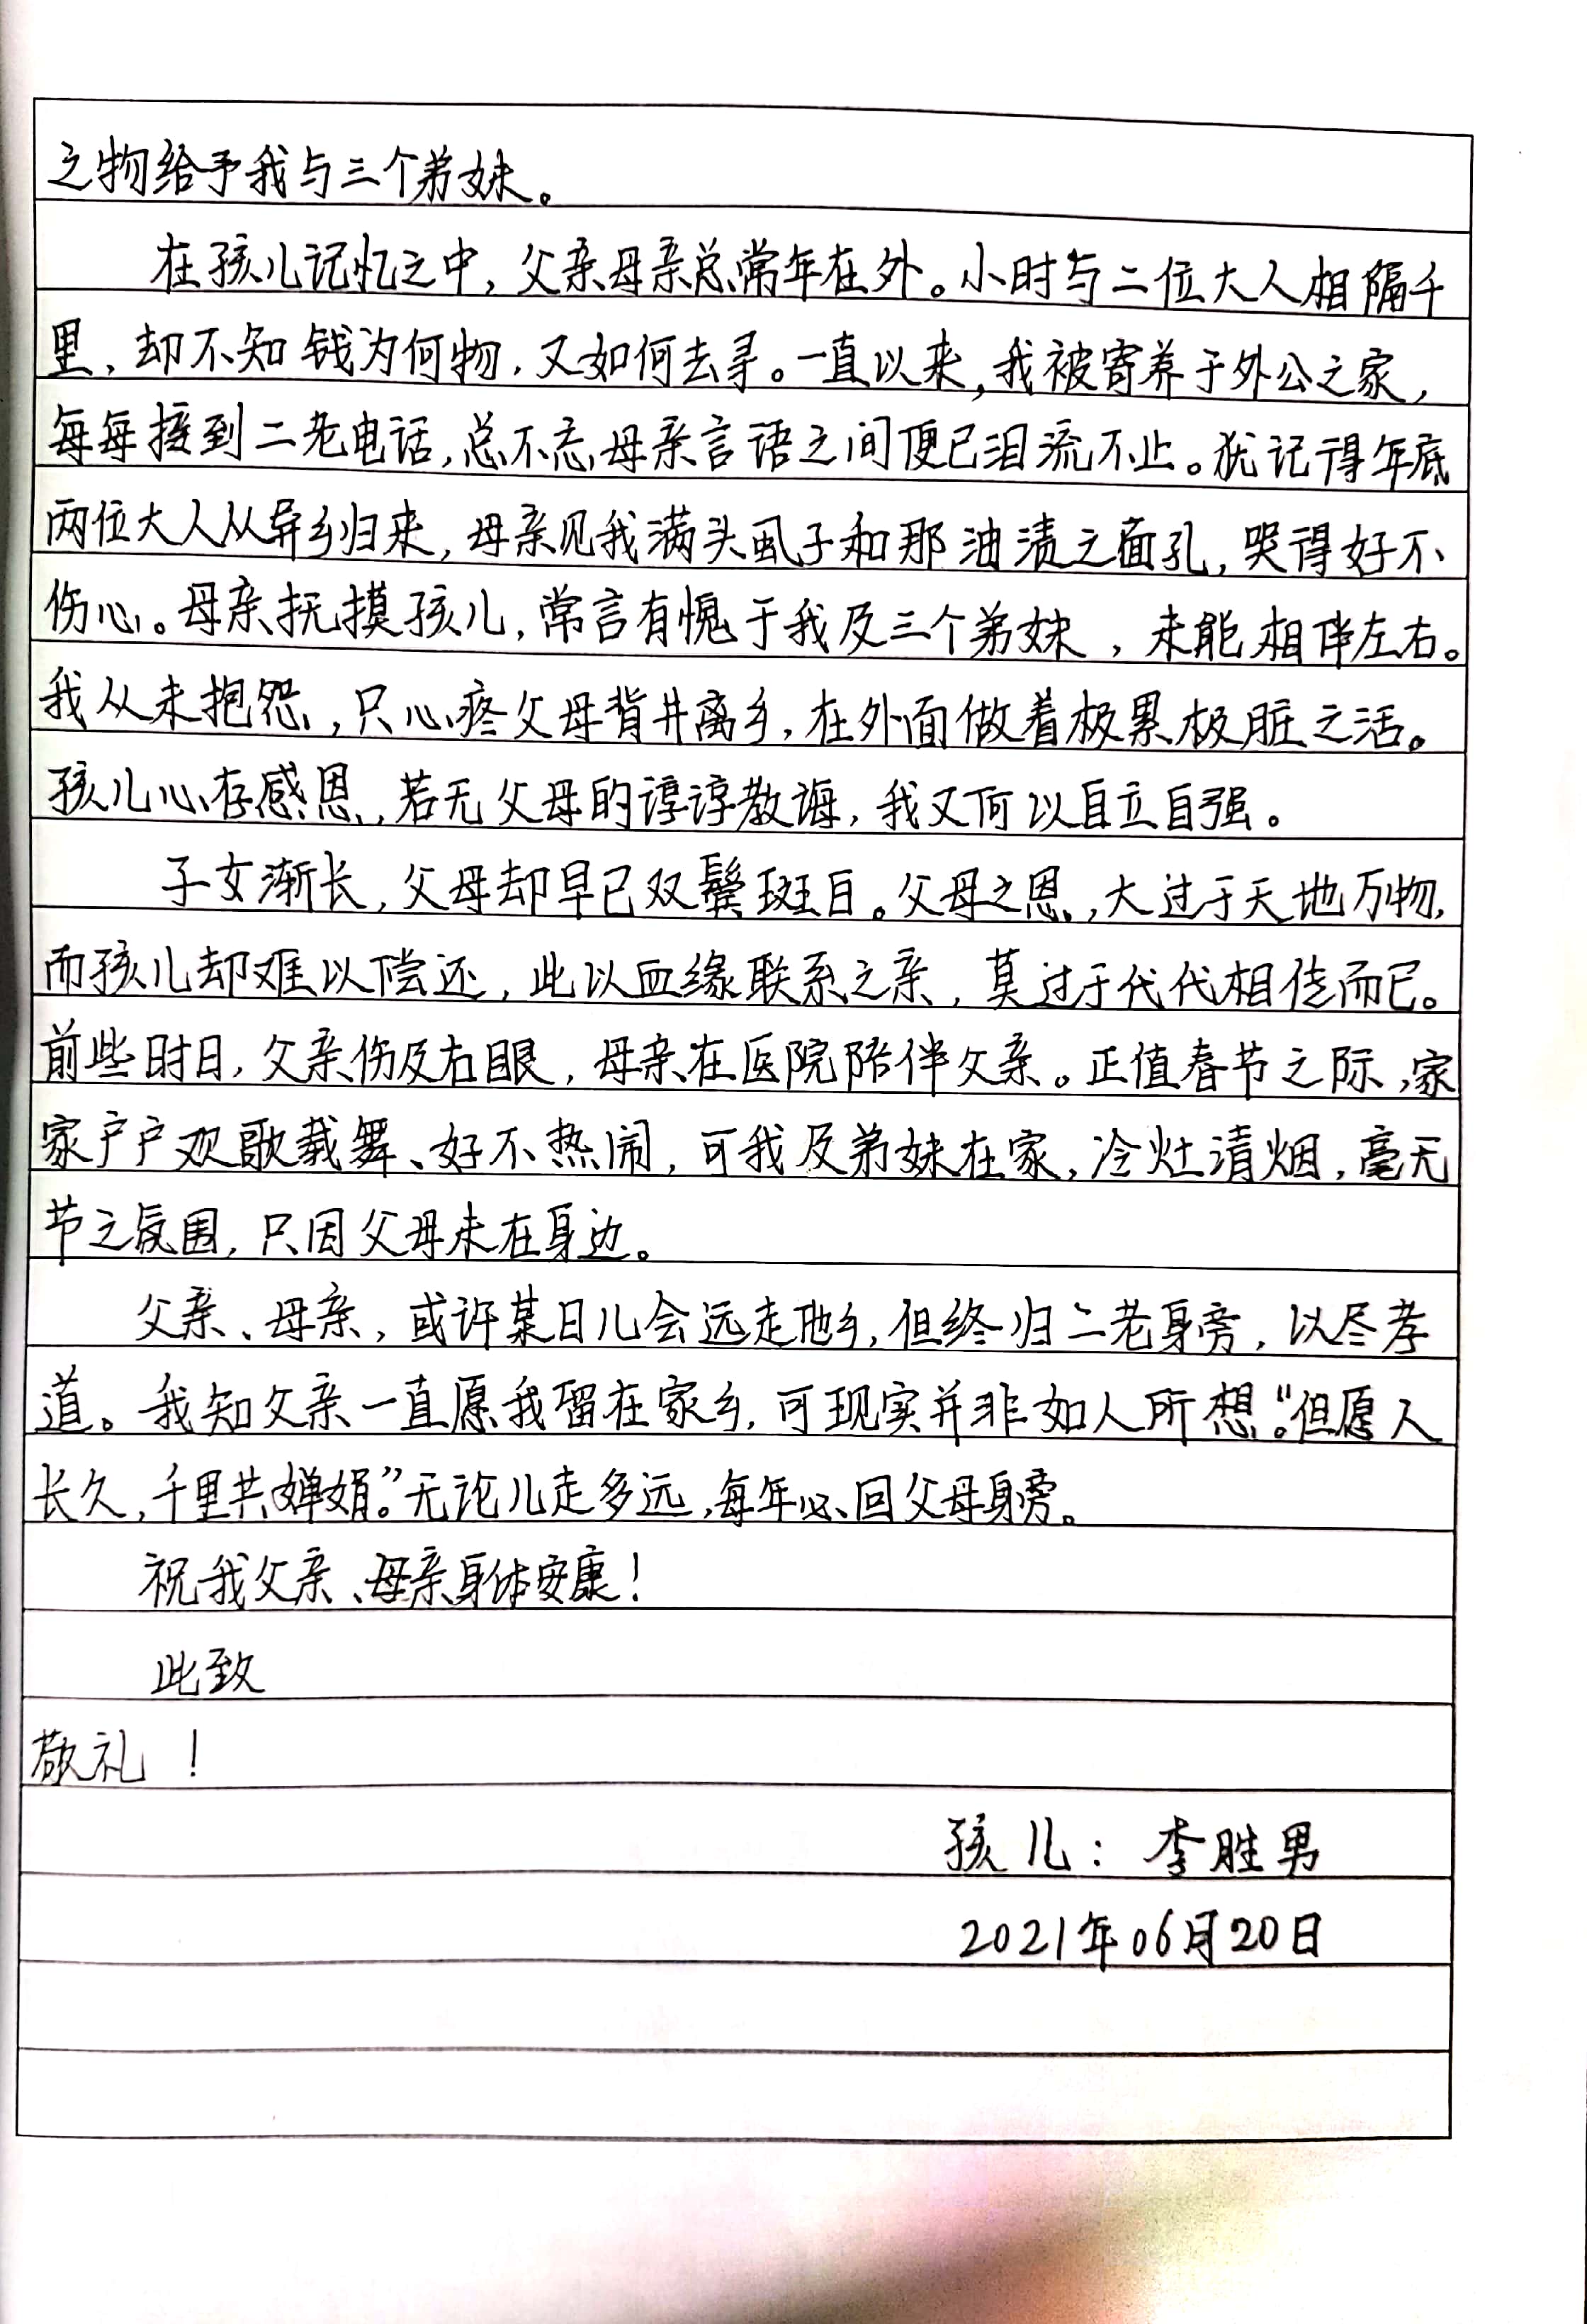 之物给予我与三个弟妹。
在孩儿记忆之中，父亲母亲总常年在外。小时与二位大人相隔千
里，却不知钱为何物，又如何去寻。一直以来，我被寄养于外公之家，
每每接到二老电话，总不忘母亲言语之间便已泪流不止。犹记得年底
两位大人从异乡归来，母亲见我满头虱子和那油渍之面孔，哭得好不
伤心。母亲抚摸孩儿，常言有愧于我及三个弟妹，未能相伴左右。
我从未抱怨，只心疼父母背井离乡，在外面做着极累极脏之活。
孩儿心存感恩，若无父母的谆谆教诲，我又何以自立自强。
子女渐长，父母却早已双鬓斑白。父母之恩，大过于天地万物，
而孩儿却难以偿还，此以血缘联系之亲，莫过于代代相传而已。
前些时日，父亲伤及右眼，母亲在医院陪伴父亲。正值春节之际，家
家户户欢歌载舞、好不热闹，可我及弟妹在家，冷灶清烟，毫无
节之氛围，只因父母未在身边。
父亲、母亲，或许某日儿会远走他乡，但终归二老身旁，以尽孝
道。我知父亲一直愿我留在家乡，可现实并非如人所想。“但愿人
长久，千里共婵娟。”无论儿走多远，每年必回父母身旁。
祝我父亲、母亲身体安康！
此致
敬礼！
孩儿：李胜男
2021年06月20日